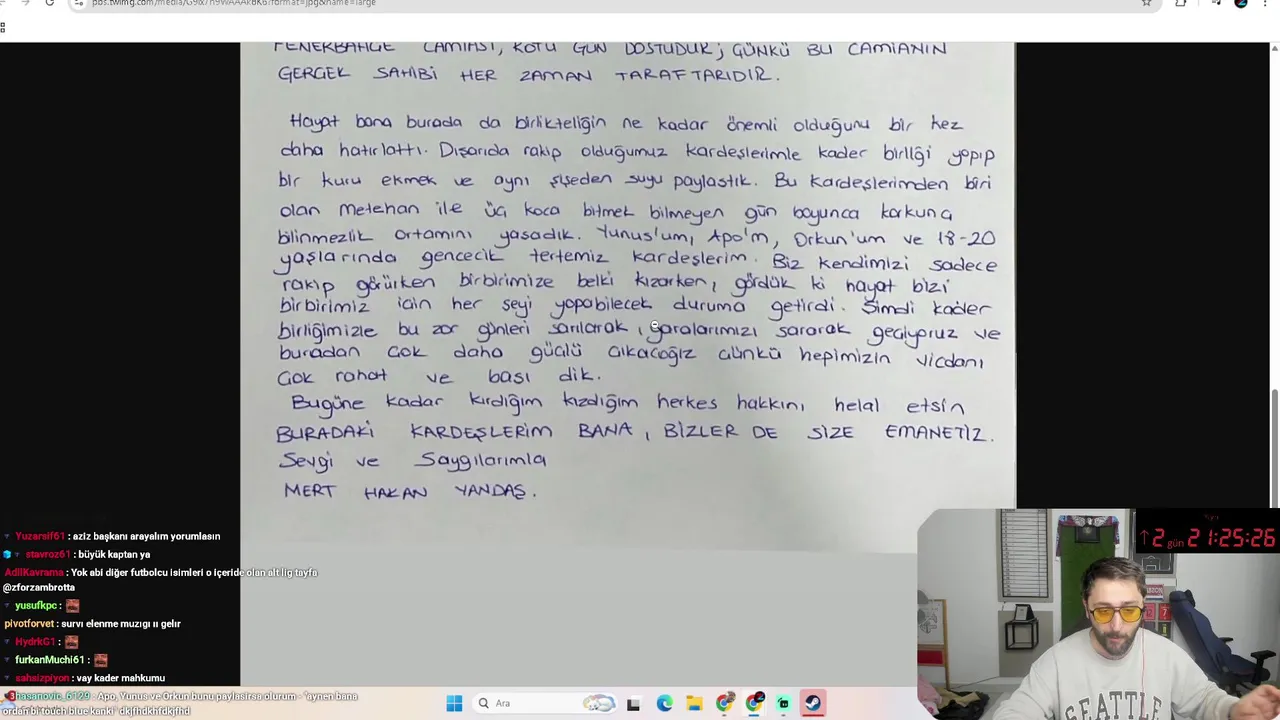 pbs.twimg.com/media/
FENERBAHÇE CAMİASI, KÖTÜ GÜN DOSTUDUR; ÇÜNKÜ BU CAMİANIN
GERÇEK SAHİBİ HER ZAMAN TARAFTARIDIR.
Hayat bana burada da birlikteliğin ne kadar önemli olduğunu bir kez
daha hatırlattı. Dışarıda rakip olduğumuz kardeşlerimle kader birliği yapıp
bir kuru ekmek ve aynı şişeden suyu paylaştık. Bu kardeşlerimden biri
olan Metehan ile üç koca bitmek bilmeyen gün boyunca korkunç
bilinmezlik ortamını yaşadık. Yunus'um, Apo'm, Orkun'um ve 18-20
yaşlarında gencecik tertemiz kardeşlerim. Biz kendimizi sadece
rakip görürken birbirimize belki kızarken, gördük ki hayat bizi
birbirimiz için her şeyi yapabilecek duruma getirdi. Şimdi kader
birliğimizle bu zor günleri sarılarak, yaralarımızı sararak geçiyoruz ve
buradan çok daha güçlü çıkacağız çünkü hepimizin vicdanı
çok rahat ve başı dik.
Bugüne kadar kırdığım kızdığım herkes hakkını helal etsin
BURADAKİ KARDEŞLERİM BANA, BİZLER DE SİZE EMANETİZ.
Sevgi ve Saygılarımla
MERT HAKAN YANDAŞ.
Yuzarsif61 : aziz başkanı arayalım yorumlasın
stavroz61 : büyük kaptan ya
AdilKavrama : Yok abi diğer futbolcu isimleri o içeride olan alt lig tayfa
@zforzambrotta
yusufkpc :
pivotforvet : survı elenme muzıgı ıı gelır
HydrkG1 :
furkanMuchi61 :
sahsizpiyon : vay kader mahkumu
hasanovic_6129 : Apo, Yunus ve Orkun bunu paylasirsa olurum - "aynen bana
ordan bi touch blue kanki" dkjfhdkhfdkjfhd
↑2 gün 21:25:26
SEATTLE
Ara